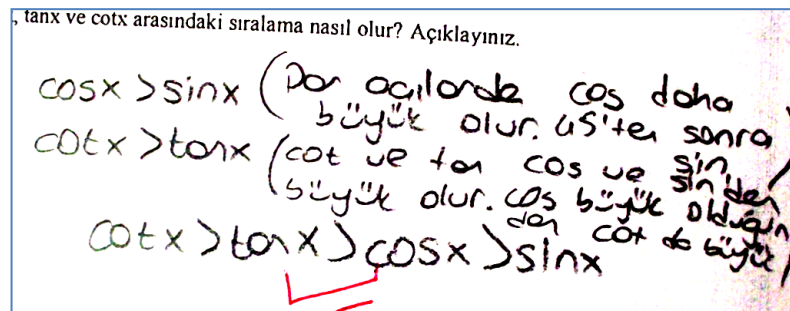 , tanx ve cotx arasındaki sıralama nasıl olur? Açıklayınız.
cosx > sinx (Dar açılarda cos daha
büyük olur. 45'ten sonra sin)
cotx > tanx (cot ve tan cos ve sin'den
büyük olur. cos büyük olduğun
dan cot da büyük)
cotx > tanx > cosx > sinx